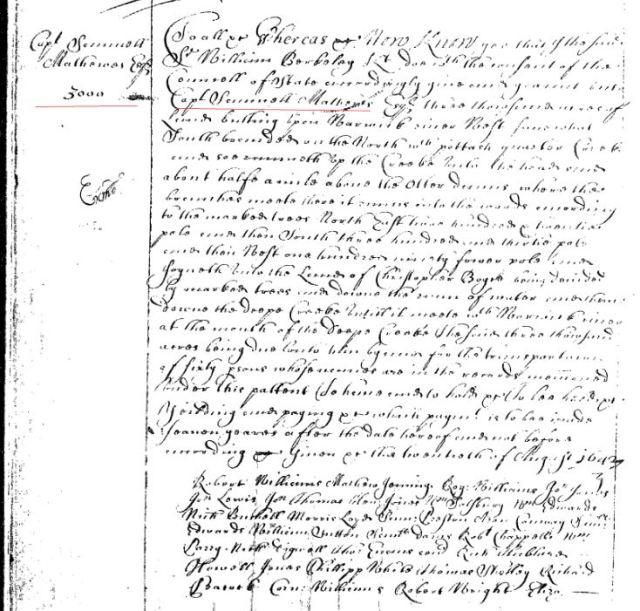 Capt Sammell
Mathewes Esqr
3000
To all &c Whereas &c Now Know yee that I the said
Sr William Berkeley Kt doe with the consent of the
Councell of State accordingly give and graunt unto
Capt Sammell Mathewes Esqr three thousand acres of
Land butting upon Warwick river West some what
South bounded on the North with pottash quarter Creeke
and soe runneth up the Creeke unto the head and
about halfe a mile above the Otter dams where the
branches meete there it runs into the woods according
to the marked trees North East three hundred & twentie
pole and then South three hundred and thirtie pole
and then West one hundred ninety fower pole and
joyneth unto the Land of Christopher Boyce being devided
by marked trees and downe the runn of water and then
downe the Deepe Creeke untill it meets with Warwick river
at the mouth of the Deepe Creeke the said three thousand
acres being due unto him by and for the transportation
of sixty psons whose names are in the records menconed
under this pattent To have and to hold &c to bee held &c
Yeilding and paying &c which paymt is to bee made
seaven yeares after the date hereof and not before
according &c Given &c this twentieth of August 1642
Robert Williams Mathew Jening Rog Williams Jon Jones
Jon Lewis Jon Thomas Wm Edwards
Morris Loyd Preston Ann
Edwards William Sutton Davis Robt Chappell Wm
Parry Evans Rich
Howell Jonas Phillipp White Thomas Richard
Peacock Corn: Williams Robert Wright Eliza